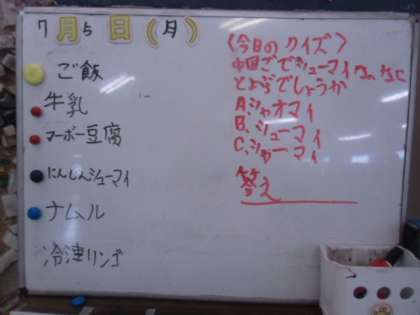 7月5日(月)
ご飯
牛乳
マーボー豆腐
にんじんシューマイ
ナムル
冷凍リンゴ
〈今日のクイズ〉
中国ごでシューマイ
とよぶでしょうか
A.シャオマイ
B.シューマイ
C.シャーマイ
答え